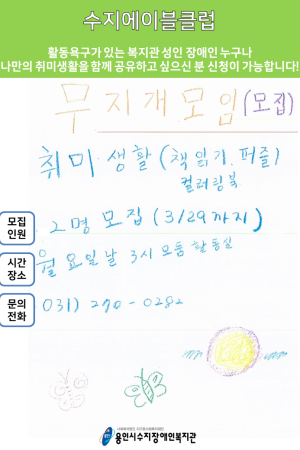 수지에이블클럽
활동욕구가 있는 복지관 성인 장애인 누구나
나만의 취미생활을 함께 공유하고 싶으신 분 신청이 가능합니다!
무지개모임(모집)
취미 생활 (책읽기, 퍼즐)
컬러링북
모집
인원
2명 모집 (3/29까지)
시간
장소
월요일날 3시 모둠활동실
문의
전화
031) 270-0282
용인시수지장애인복지관